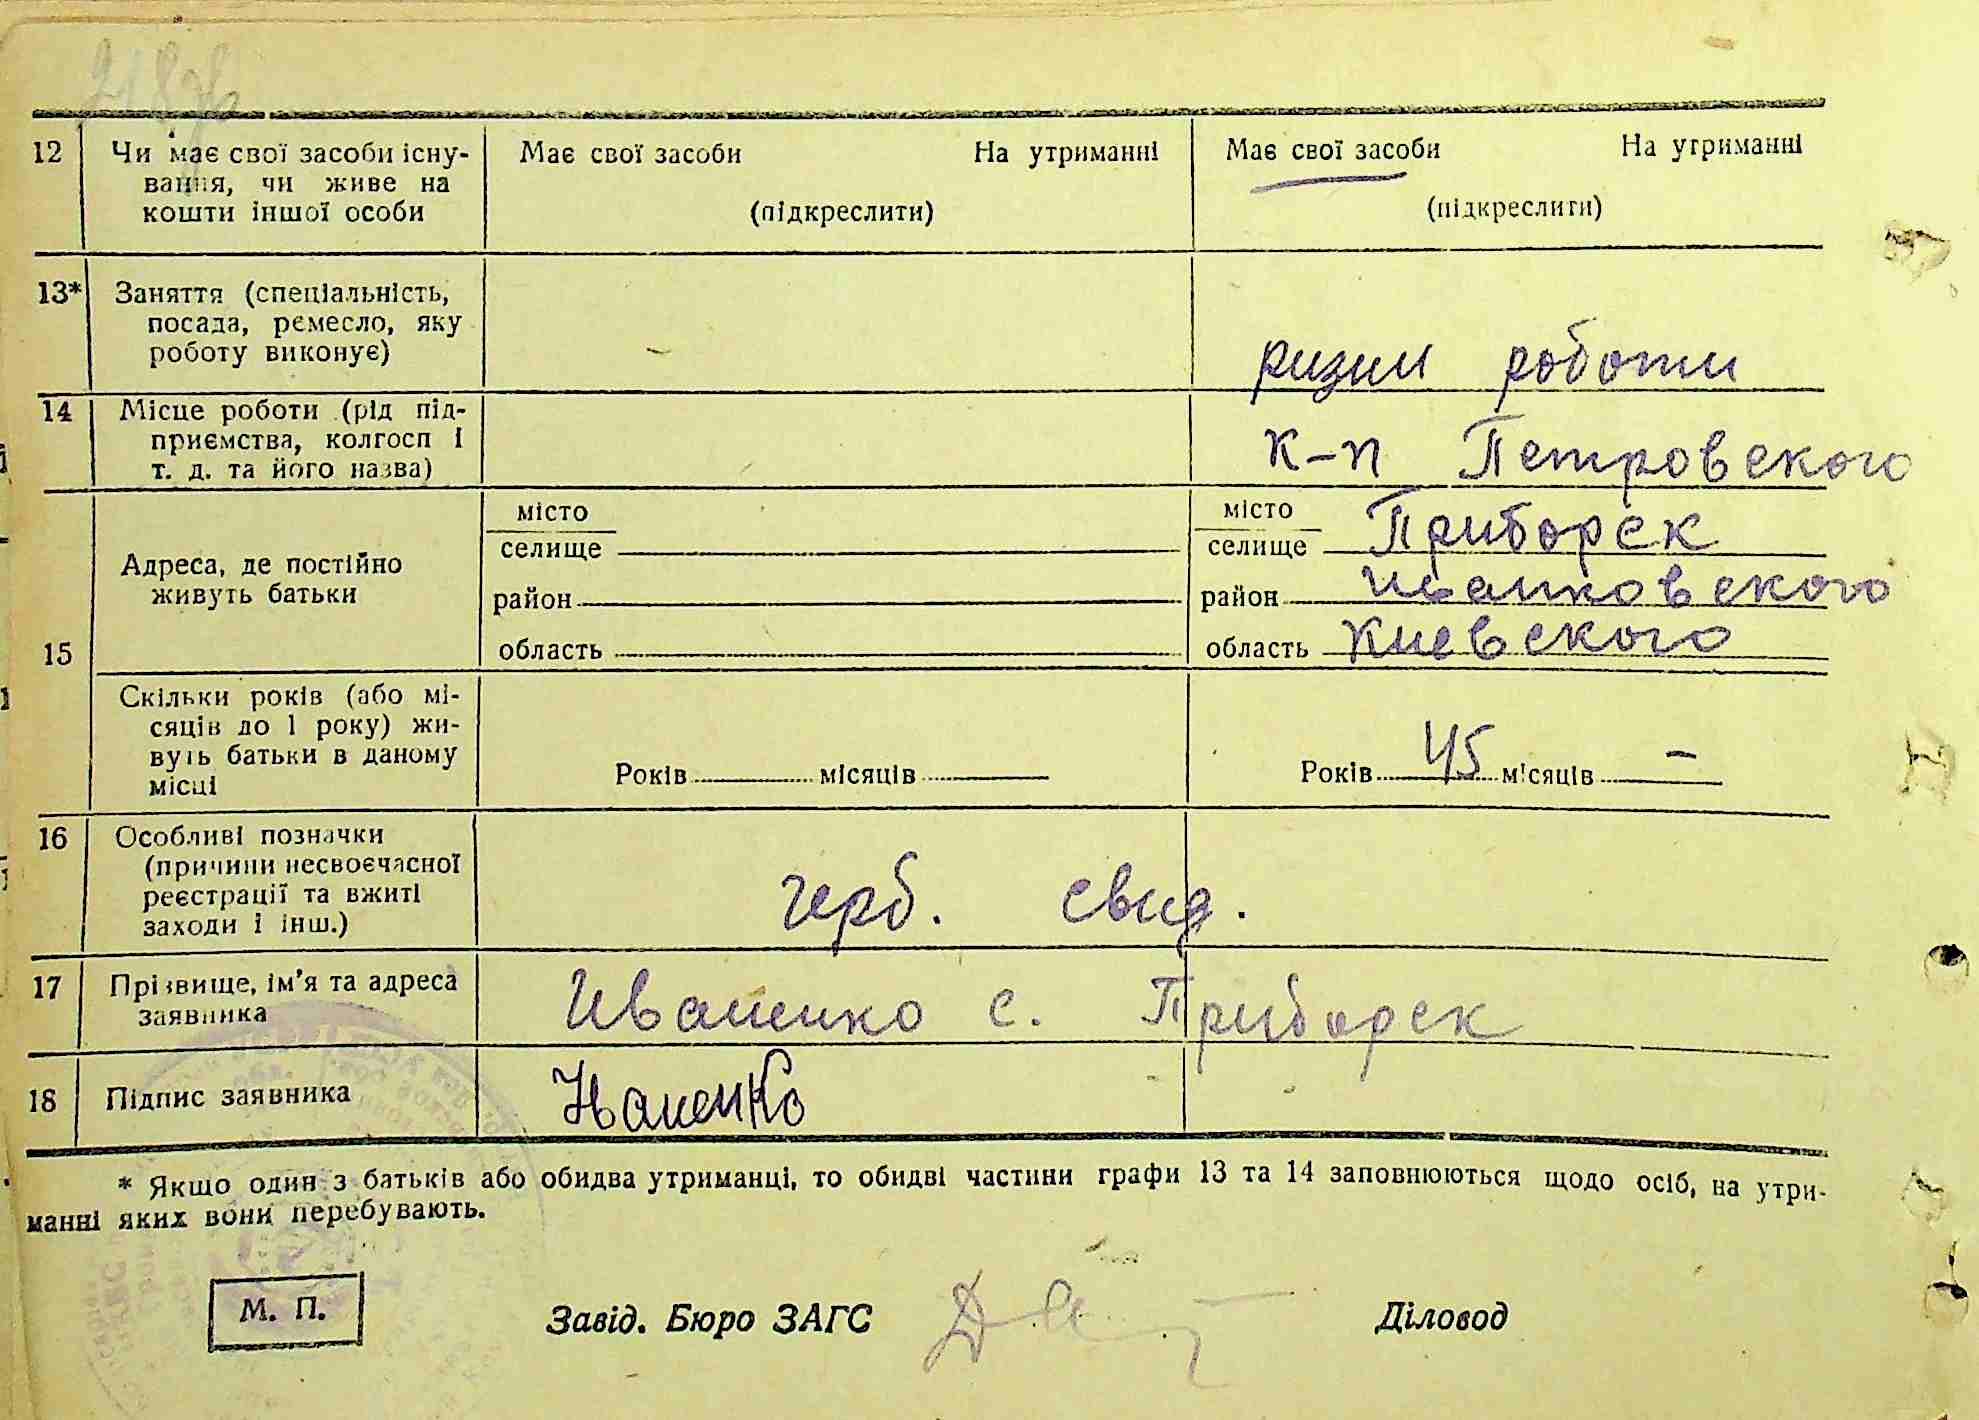 12 Чи має свої засоби існу- Має свої засоби На утриманні Має свої засоби На утриманні
вання, чи живе на
кошти іншої особи (підкреслити) (підкреслити)
13* Заняття (спеціальність,
посада, ремесло, яку
роботу виконує) ризни роботи
14 Місце роботи (рід під-
приємства, колгосп і к-п Петровского
т. д. та його назва)
місто місто Приборск
селище селище
Адреса, де постійно
живуть батьки район район Иванковского
15 область область Киевского
Скільки років (або мі-
сяців до 1 року) жи-
вуть батьки в даному
місці Років місяців Років 45 місяців –
16 Особливі позначки
(причини несвоєчасної
реєстрації та вжиті герб. свид.
заходи і інш.)
17 Прізвище, ім'я та адреса
заявника Иваненко с. Приборск
18 Підпис заявника Иваненко
* Якщо один з батьків або обидва утриманці, то обидві частини графи 13 та 14 заповнюються щодо осіб, на утри-
манні яких вони перебувають.
М. П. Завід. Бюро ЗАГС Діловод